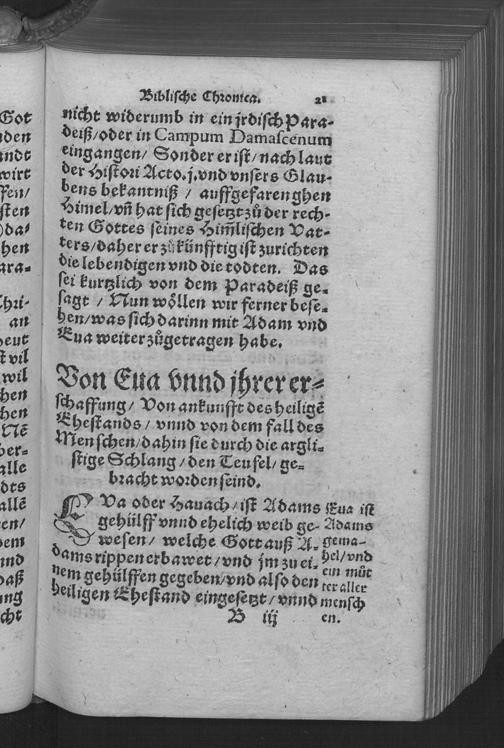 Biblische Chronica. 21
nicht widerumb in ein jrdisch Para-
deiß/ oder in Campum Damascenum
eingangen/ Sonder er ist/ nach laut
der Histori Acto. j. vnd vnsers Glau-
bens bekantniß / auffgefaren ghen
Himel/ vñ hat sich gesetzt zů der rech-
ten Gottes seines Him̃lischen Vat-
ters/ daher er zůkünfftig ist zurichten
die lebendigen vnd die todten. Das
sei kurtzlich von dem Paradeiß ge-
sagt / Nun wöllen wir ferner bese-
hen/ was sich darinn mit Adam vnd
Eua weiter zůgetragen habe.
Von Eua vnnd jhrer er-
schaffung/ Von ankunfft des heiligẽ
Ehestands/ vnnd von dem fall des
Menschen/ dahin sie durch die argli-
stige Schlang/ den Teufel/ ge-
bracht worden seind.
EVa oder Hauach/ ist Adams
gehülff vnnd ehelich weib ge-
wesen/ welche Gott auß A-
dams rippen erbawet/ vnd jm zu ei-
nem gehülffen gegeben/ vnd also den
heiligen Ehestand eingesetzt/ vnnd
Eua ist
Adams
gema-
hel/ vnd
ein můt
ter aller
mensch
en.
B iij